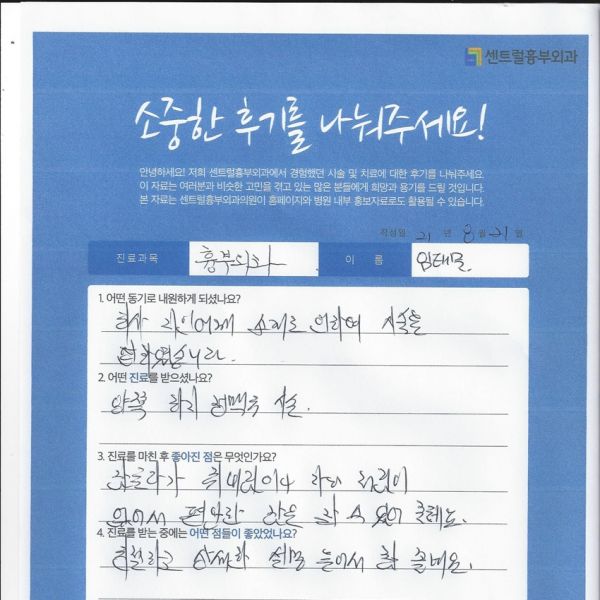 센트럴흉부외과
소중한 후기를 나눠주세요!
안녕하세요! 저희 센트럴흉부외과에서 경험했던 시술 및 치료에 대한 후기를 나눠주세요.
이 자료는 여러분과 비슷한 고민을 겪고 있는 많은 분들에게 희망과 용기를 드릴 것입니다.
본 자료는 센트럴흉부외과의원이 홈페이지와 병원 내부 홍보자료로도 활용될 수 있습니다.
작성일 21 년 8 월 21 일
진료과목 흉부외과 이 름
1. 어떤 동기로 내원하게 되셨나요?
회사 지인에게 소개로 의하여 시술을
2. 어떤 진료를 받으셨나요?
양쪽 하지 정맥류 시술.
3. 진료를 마친 후 좋아진 점은 무엇인가요?
없어서 편안한 잠을 잘 수 있어
4. 진료를 받는 중에는 어떤 점들이 좋았었나요?
친절하고 상세한 설명